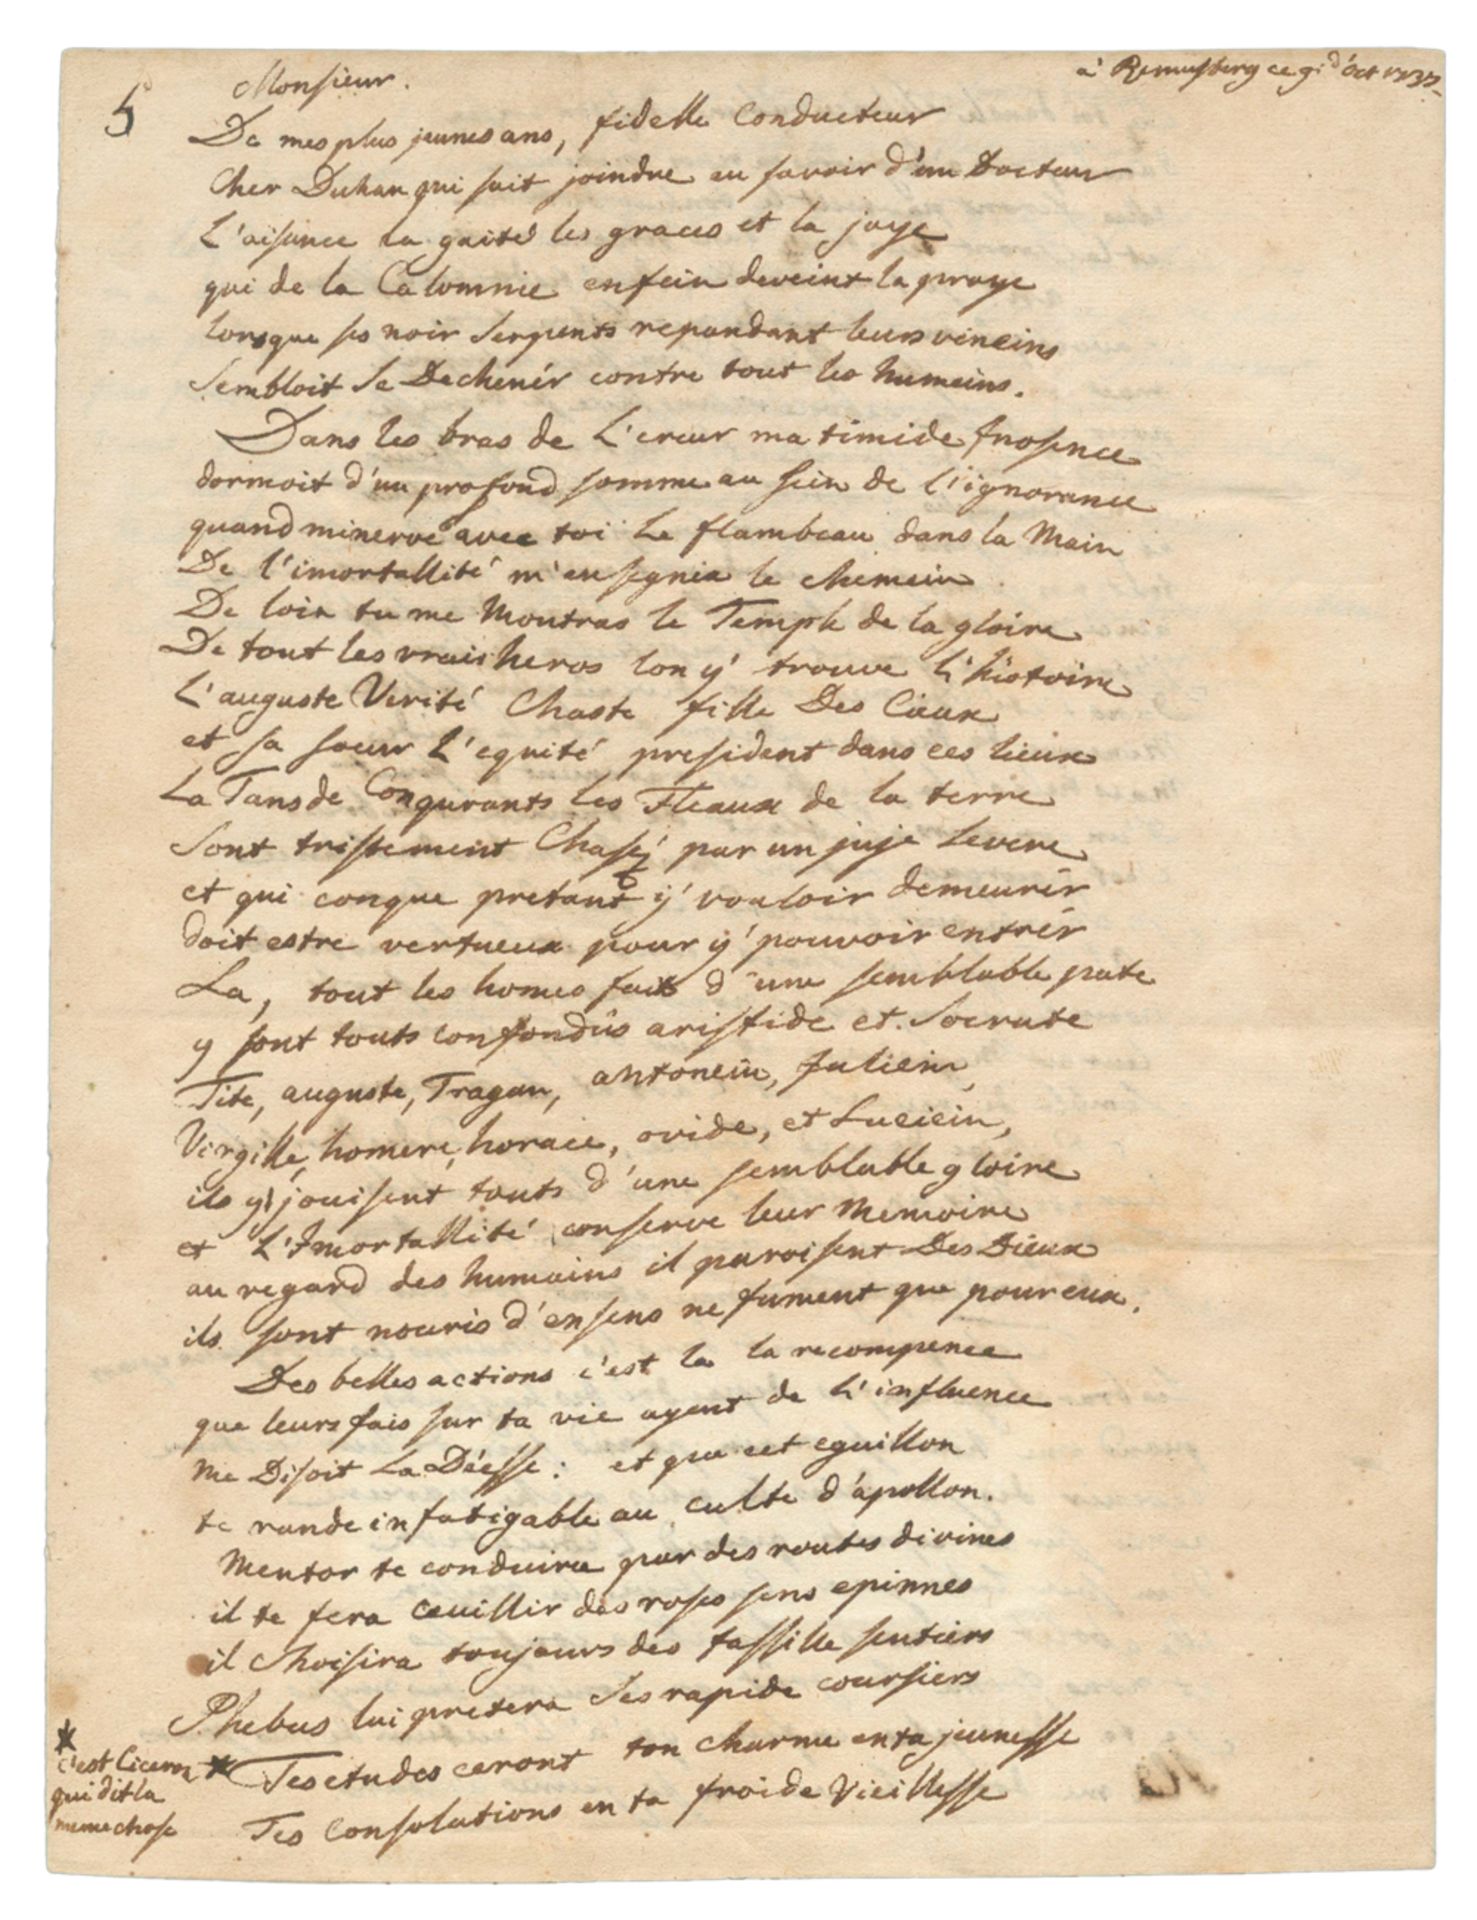 à Remusberg ce 9 d'Oct 1737
5
Monsieur.
De mes plus jeunes ans, fidelle Conducteur
Cher Duhan qui sait joindre au savoir d'un Docteur
L'aisance la gaité les graces et la joye
qui de la Calomnie enfein deveint la proye
lorsque ses noir Serpents repandant leurs vineins
Sembloit se Dechenér contre tout les humeins.
Dans les bras de L'ereur ma timide Inosence
dormoit d'un profond somme au sein de l'ignorance
quand minerve avec toi Le flambeau dans la Main
De l'imortallité m'ensegnia le chemein
De loin tu me Montras le Temple de la gloire
De tout les vrais heros lon y trouve l'histoire
L'auguste Verité Chaste fille Des Cieux
et sa soeur L'equité president dans ces lieux
La Tans de Conqurants les Fleaux de la terre
Sont tristement Chaséz par un juje severe
et qui conque pretant y vouloir demeurér
doit estre vertueux pour y pouvoir entrér
La, tout les homes faits d'une semblable pate
y sont touts confondûs aristide et Socrate
Tite, auguste, Tragan, antonein, Juliein,
Virgille, homere, horace, ovide, et Lucicin,
ils y jouisent touts d'une semblable gloire
et L'Imortallité conserve leur Memoire
au regard des humains il paroisent Des Dieux
ils sont nouris d'ensens ne fument que pour eux.
Des belles actions c'est la la recompence
que leurs fais sur ta vie ayent de l'influence
me Disoit La Déesse: et que cet eguillon
te rande infatigable au culte d'apollon.
Mentor te conduira par des routes divines
il te fera ceuillir des roses sens epinnes
il Choisira toujours des fassille sentiers
Phebus lui pretera Ses rapide coursiers
* Tes etudes ceront ton charme en ta jeunesse
Tes Consolations en ta froide Vieillesse
*
c'est Ciceron
qui dit la
meme chose